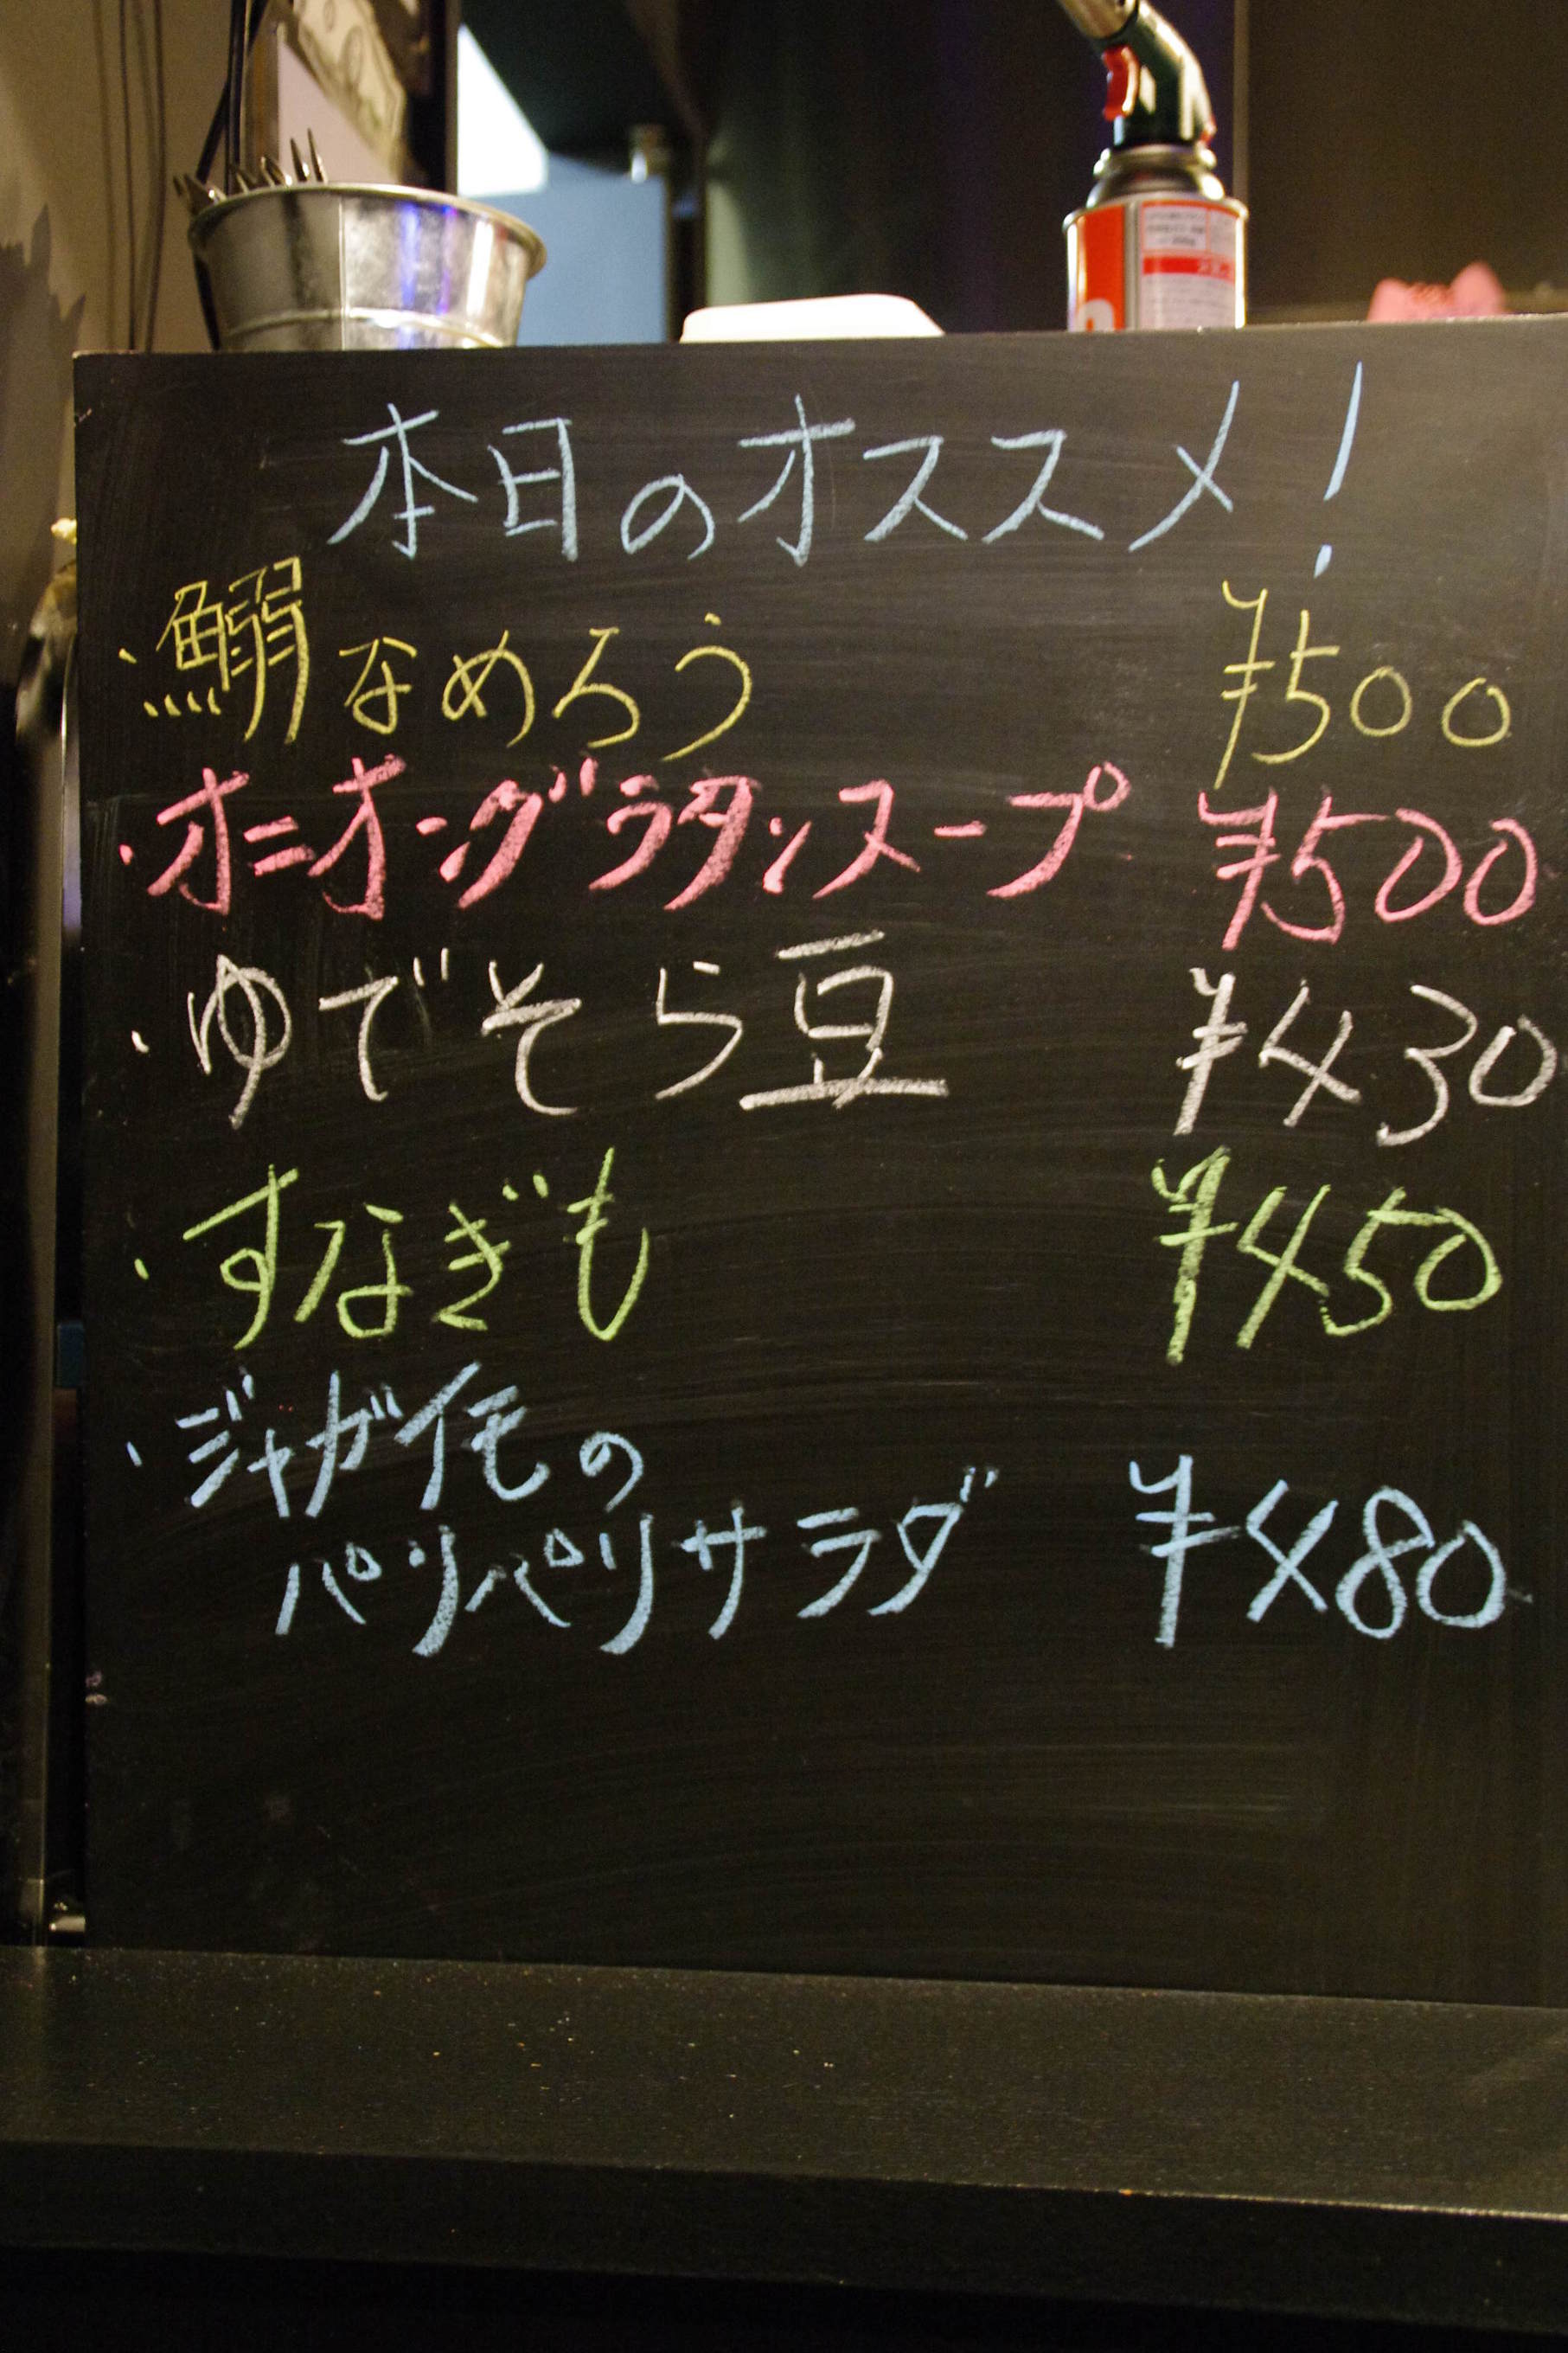 本日のオススメ!
・鰯なめろう ¥500
・オニオングラタンスープ ¥500
・ゆでそら豆 ¥430
・すなぎも ¥450
・ジャガイモの
パリパリサラダ ¥480